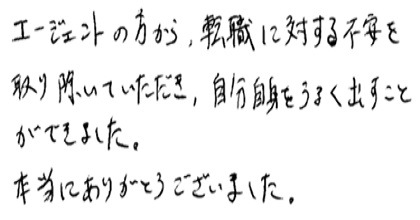 エージェントの方から、転職に対する不安を
取り除いていただき、自分自身をうまく出すこと
ができました。
本当にありがとうございました。